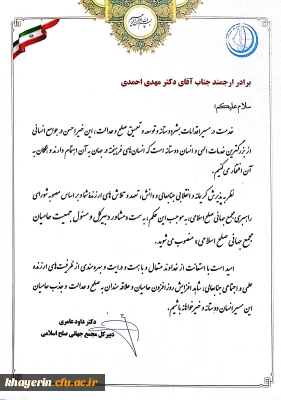 برادر ارجمند جناب آقای دکتر مهدی احمدی
سلام علیکم؛
خدمت در مسیر اقدامات بشردوستانه و توسعه و تعمیق صلح و عدالت، این خیر احسن در جوامع انسانی
از بزرگترین خدمات الهی و انسان دوستانه است که انسان‌های فرهیخته در جهان به آن اهتمام دارند و همگان به
آن افتخار می‌کنیم.
نظر به پذیرش کریمانه و انقلابی جنابعالی و دانش، تعهد و تلاش‌های ارزنده شما و بر اساس مصوبه شورای
راهبری مجمع جهانی صلح اسلامی، به موجب این حکم، به سمت «مشاور دبیرکل و مسئول جمعیت حامیان
مجمع جهانی صلح اسلامی» منصوب می شوید.
امید است با استعانت از خداوند متعال و با همت و درایت و بهره مندی از ظرفیت‌های ارزنده
علمی و اجتماعی جنابعالی، شاهد افزایش روزافزون حامیان و علاقه مندان به صلح و عدالت و جذب حامیان
این مسیر انسان دوستانه و خیرخواهانه باشیم.
دکتر داود عامری
دبیرکل مجمع جهانی صلح اسلامی
khayerin.cfu.ac.ir